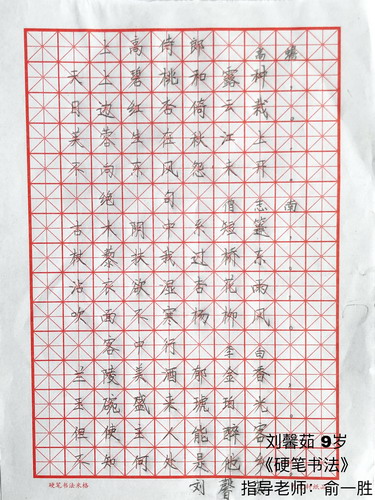 上高侍郎
高蟾
天上碧桃和露种
日边红杏倚云栽
芙蓉生在秋江上
不向东风怨未开
绝句
僧志南
古木阴中系短篷
杖藜扶我过桥东
沾衣欲湿杏花雨
吹面不寒杨柳风
客中行
李白
兰陵美酒郁金香
玉碗盛来琥珀光
但使主人能醉客
不知何处是他乡
刘馨
硬笔书法米格
刘馨茹 9岁
《硬笔书法》
指导老师：俞一胜